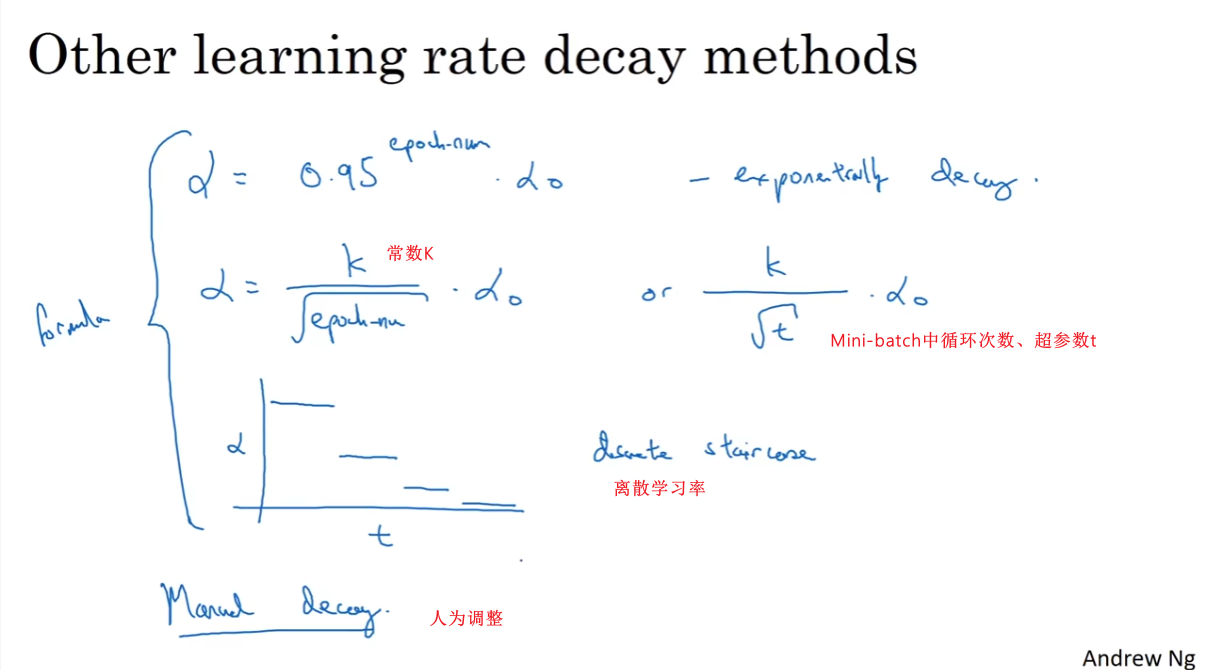 Other learning rate decay methods
formula
α = 0.95^epoch-num · α₀ - exponentially decay.
α = k/√epoch-num · α₀ or k/√t · α₀
常数K
Mini-batch中循环次数、超参数t
α
t
discrete staircase
离散学习率
Manual decay.
人为调整
Andrew Ng